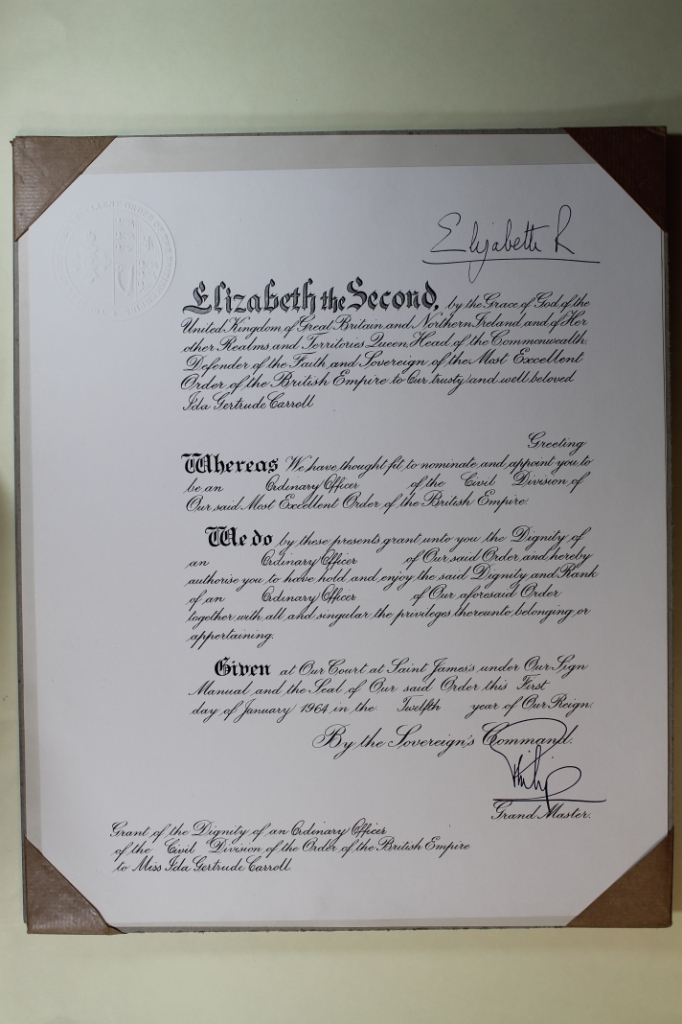 Elizabeth R
Elizabeth the Second, by the Grace of God, of the
United Kingdom of Great Britain and Northern Ireland and of Her
other Realms and Territories Queen, Head of the Commonwealth,
Defender of the Faith and Sovereign of the Most Excellent
Order of the British Empire to Our trusty and well beloved
Ida Gertrude Carroll
Greeting
Whereas We have thought fit to nominate and appoint you to
be an Ordinary Officer of the Civil Division of
Our said Most Excellent Order of the British Empire.
We do by these presents grant unto you the Dignity of
an Ordinary Officer of Our said Order and hereby
authorise you to have hold and enjoy the said Dignity and Rank
of an Ordinary Officer of Our aforesaid Order
together with all and singular the privileges thereunto belonging or
appertaining.
Given at Our Court at Saint James's under Our Sign
Manual and the Seal of Our said Order this First
day of January 1964 in the Twelfth year of Our Reign.
By the Sovereign's Command.
Philip
Grand Master.
Grant of the Dignity of an Ordinary Officer
of the Civil Division of the Order of the British Empire
to Miss Ida Gertrude Carroll